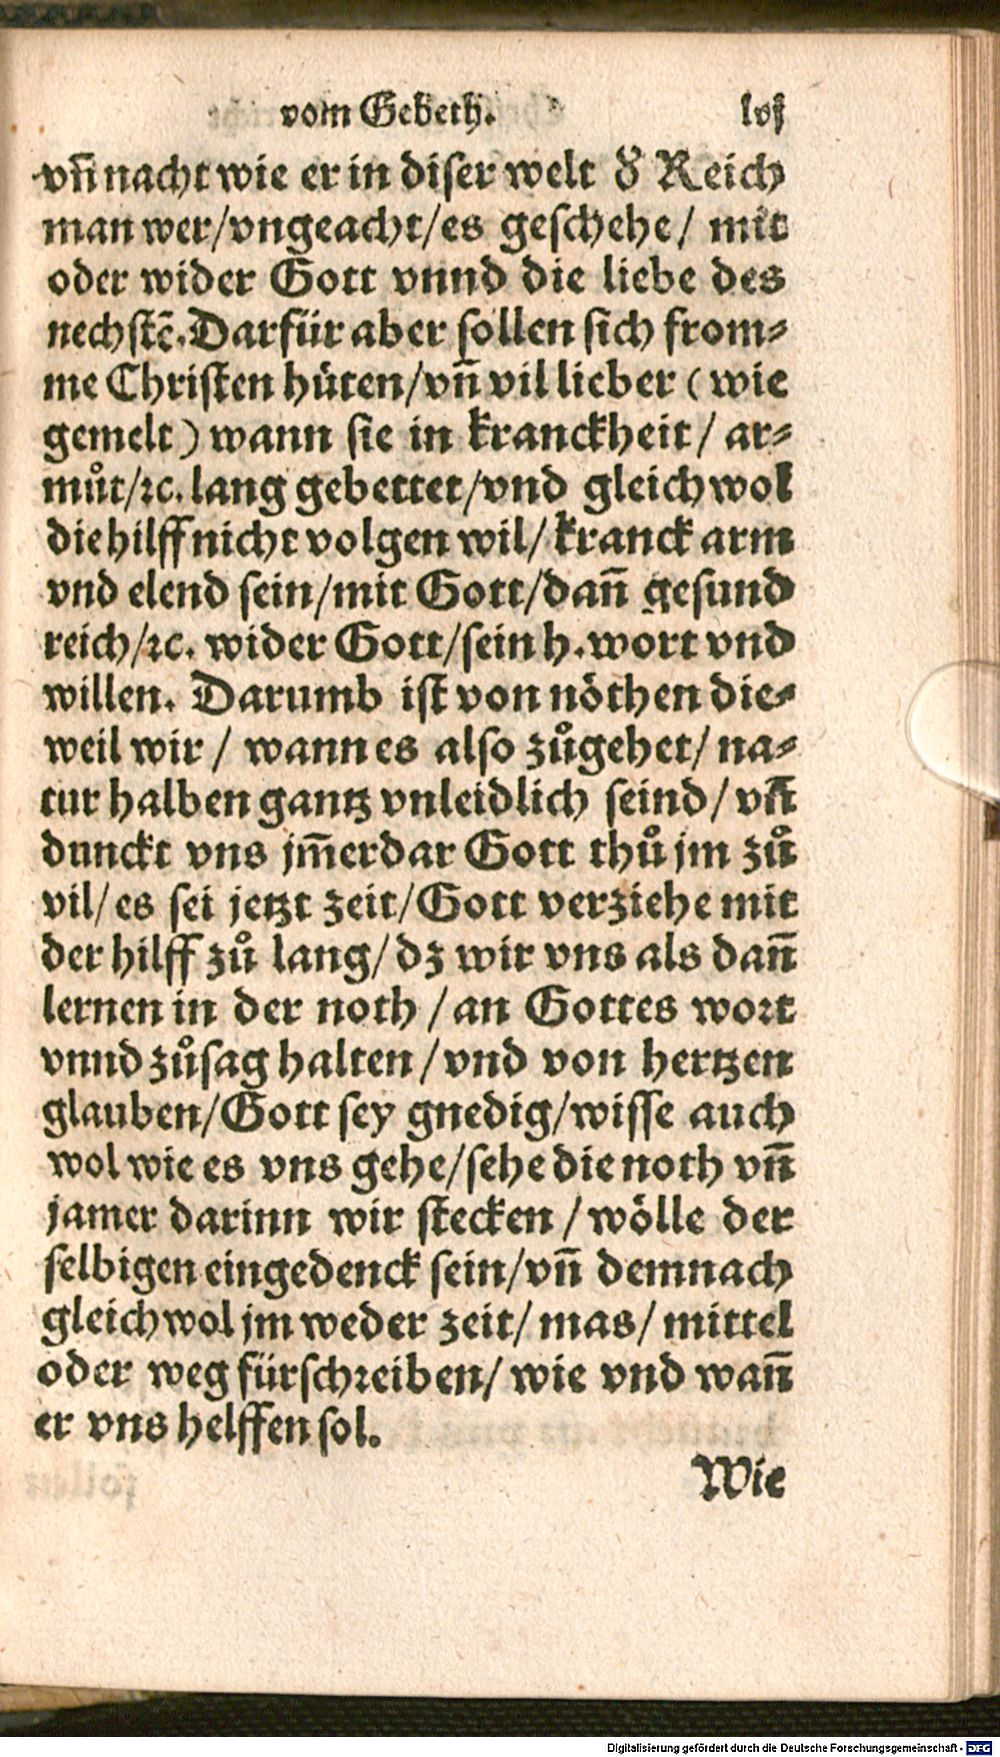 vom Gebeth. lvj
vñ nacht wie er in diser welt d' Reich
man wer/vngeacht/es geschehe/ mit
oder wider Gott vnnd die liebe des
nechstẽ. Darfür aber sollen sich from⸗
me Christen hüten/vñ vil lieber (wie
gemelt) wann sie in kranckheit/ ar⸗
můt/ꝛc. lang gebettet/vnd gleichwol
die hilff nicht volgen wil/ kranck arm
vnd elend sein/mit Gott/dañ gesund
reich/ꝛc. wider Gott/sein h. wort vnd
willen. Darumb ist von nöthen die⸗
weil wir / wann es also zůgehet/ na⸗
tur halben gantz vnleidlich seind/ vñ
dunckt vns jm̃erdar Gott thů jm zů
vil/ es sei jetzt zeit/Gott verziehe mit
der hilff zů lang/ dz wir vns als dañ
lernen in der noth / an Gottes wort
vnnd zůsag halten / vnd von hertzen
glauben/Gott sey gnedig/wisse auch
wol wie es vns gehe/sehe die noth vñ
jamer darinn wir stecken / wölle der
selbigen eingedenck sein/vñ demnach
gleichwol jm weder zeit/ mas/ mittel
oder weg fürschreiben/ wie vnd wañ
er vns helffen sol.
Wie
Digitalisierung gefördert durch die Deutsche Forschungsgemeinschaft - DFG